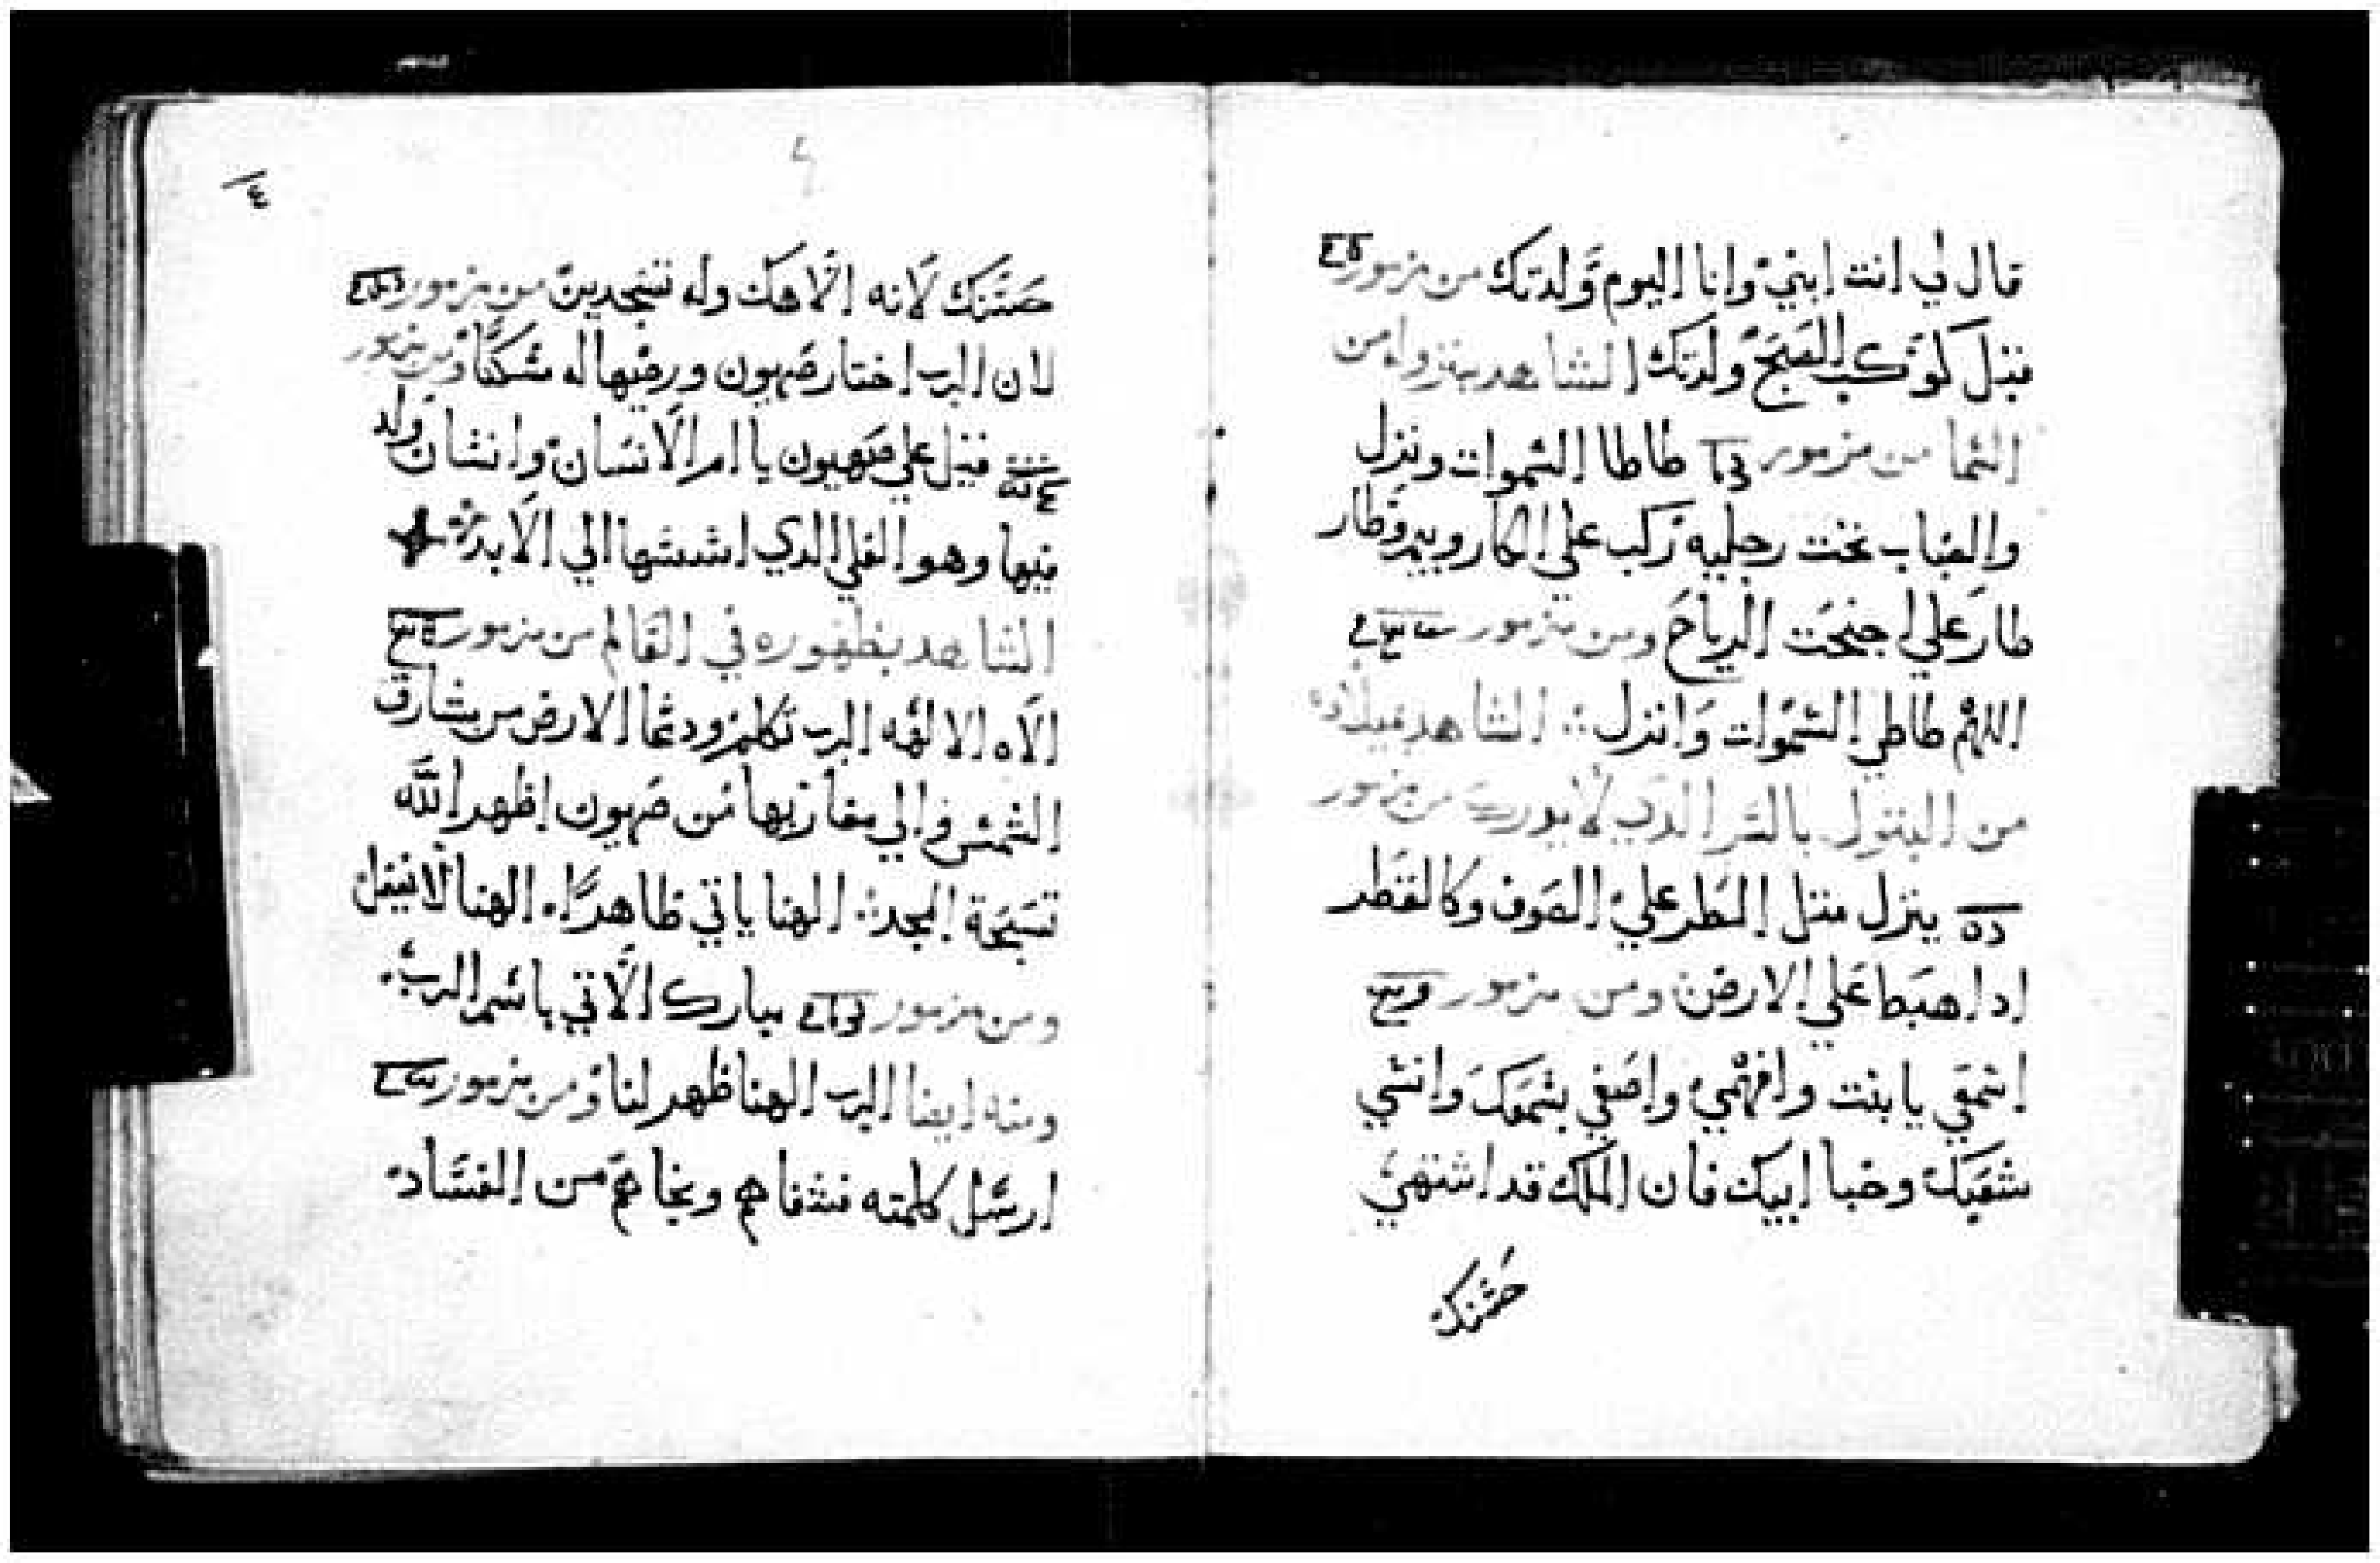 قال لي انت ابني وانا اليوم ولدتك من مزمور
قبل كوكب الصبح ولدتك الشاهد بنزوله من
السما من مزمور طاطا السموات ونزل
والضباب تحت رجليه ركب علي الكاروبيم وطار
طار علي اجنحت الرياح ومن مزمور
اللهم طاطي السموات وانزل الشاهد بميلاده
من البتول بالسر الذي لا يدرك من مزمور
ينزل مثل المطر علي الصوف وكالقطر
ادا هبط علي الارض ومن مزمور
اسمعي يا بنت وافهمي واصغي بسمعك وانسي
شعبك وخبا ابيك فان الملك قد اشتهي
حسنك
٤
حسنك لانه الاهك وله تسجدين من مزمور
لان الرب اختار صهيون ورضيها له مسكنا ومن مزمور
قيل علي صهيون يا ام الانسان وانسان ولد
فيها وهو العلي الدي اسسها الي الابد
الشاهد بظهوره في العالم من مزمور
الاه الالهه الرب تكلم ودعا الارض من مشارق
الشمس والي مغاربها من صهيون اظهر الله
تسبحة المجد الهنا ياتي ظاهرا الهنا لا يغفل
ومن مزمور مبارك الاتي باسم الرب
ومنه ايضا الرب الهنا ظهر لنا ومن مزمور
ارسل كلمته فشفاهم ونجاهم من الفساد